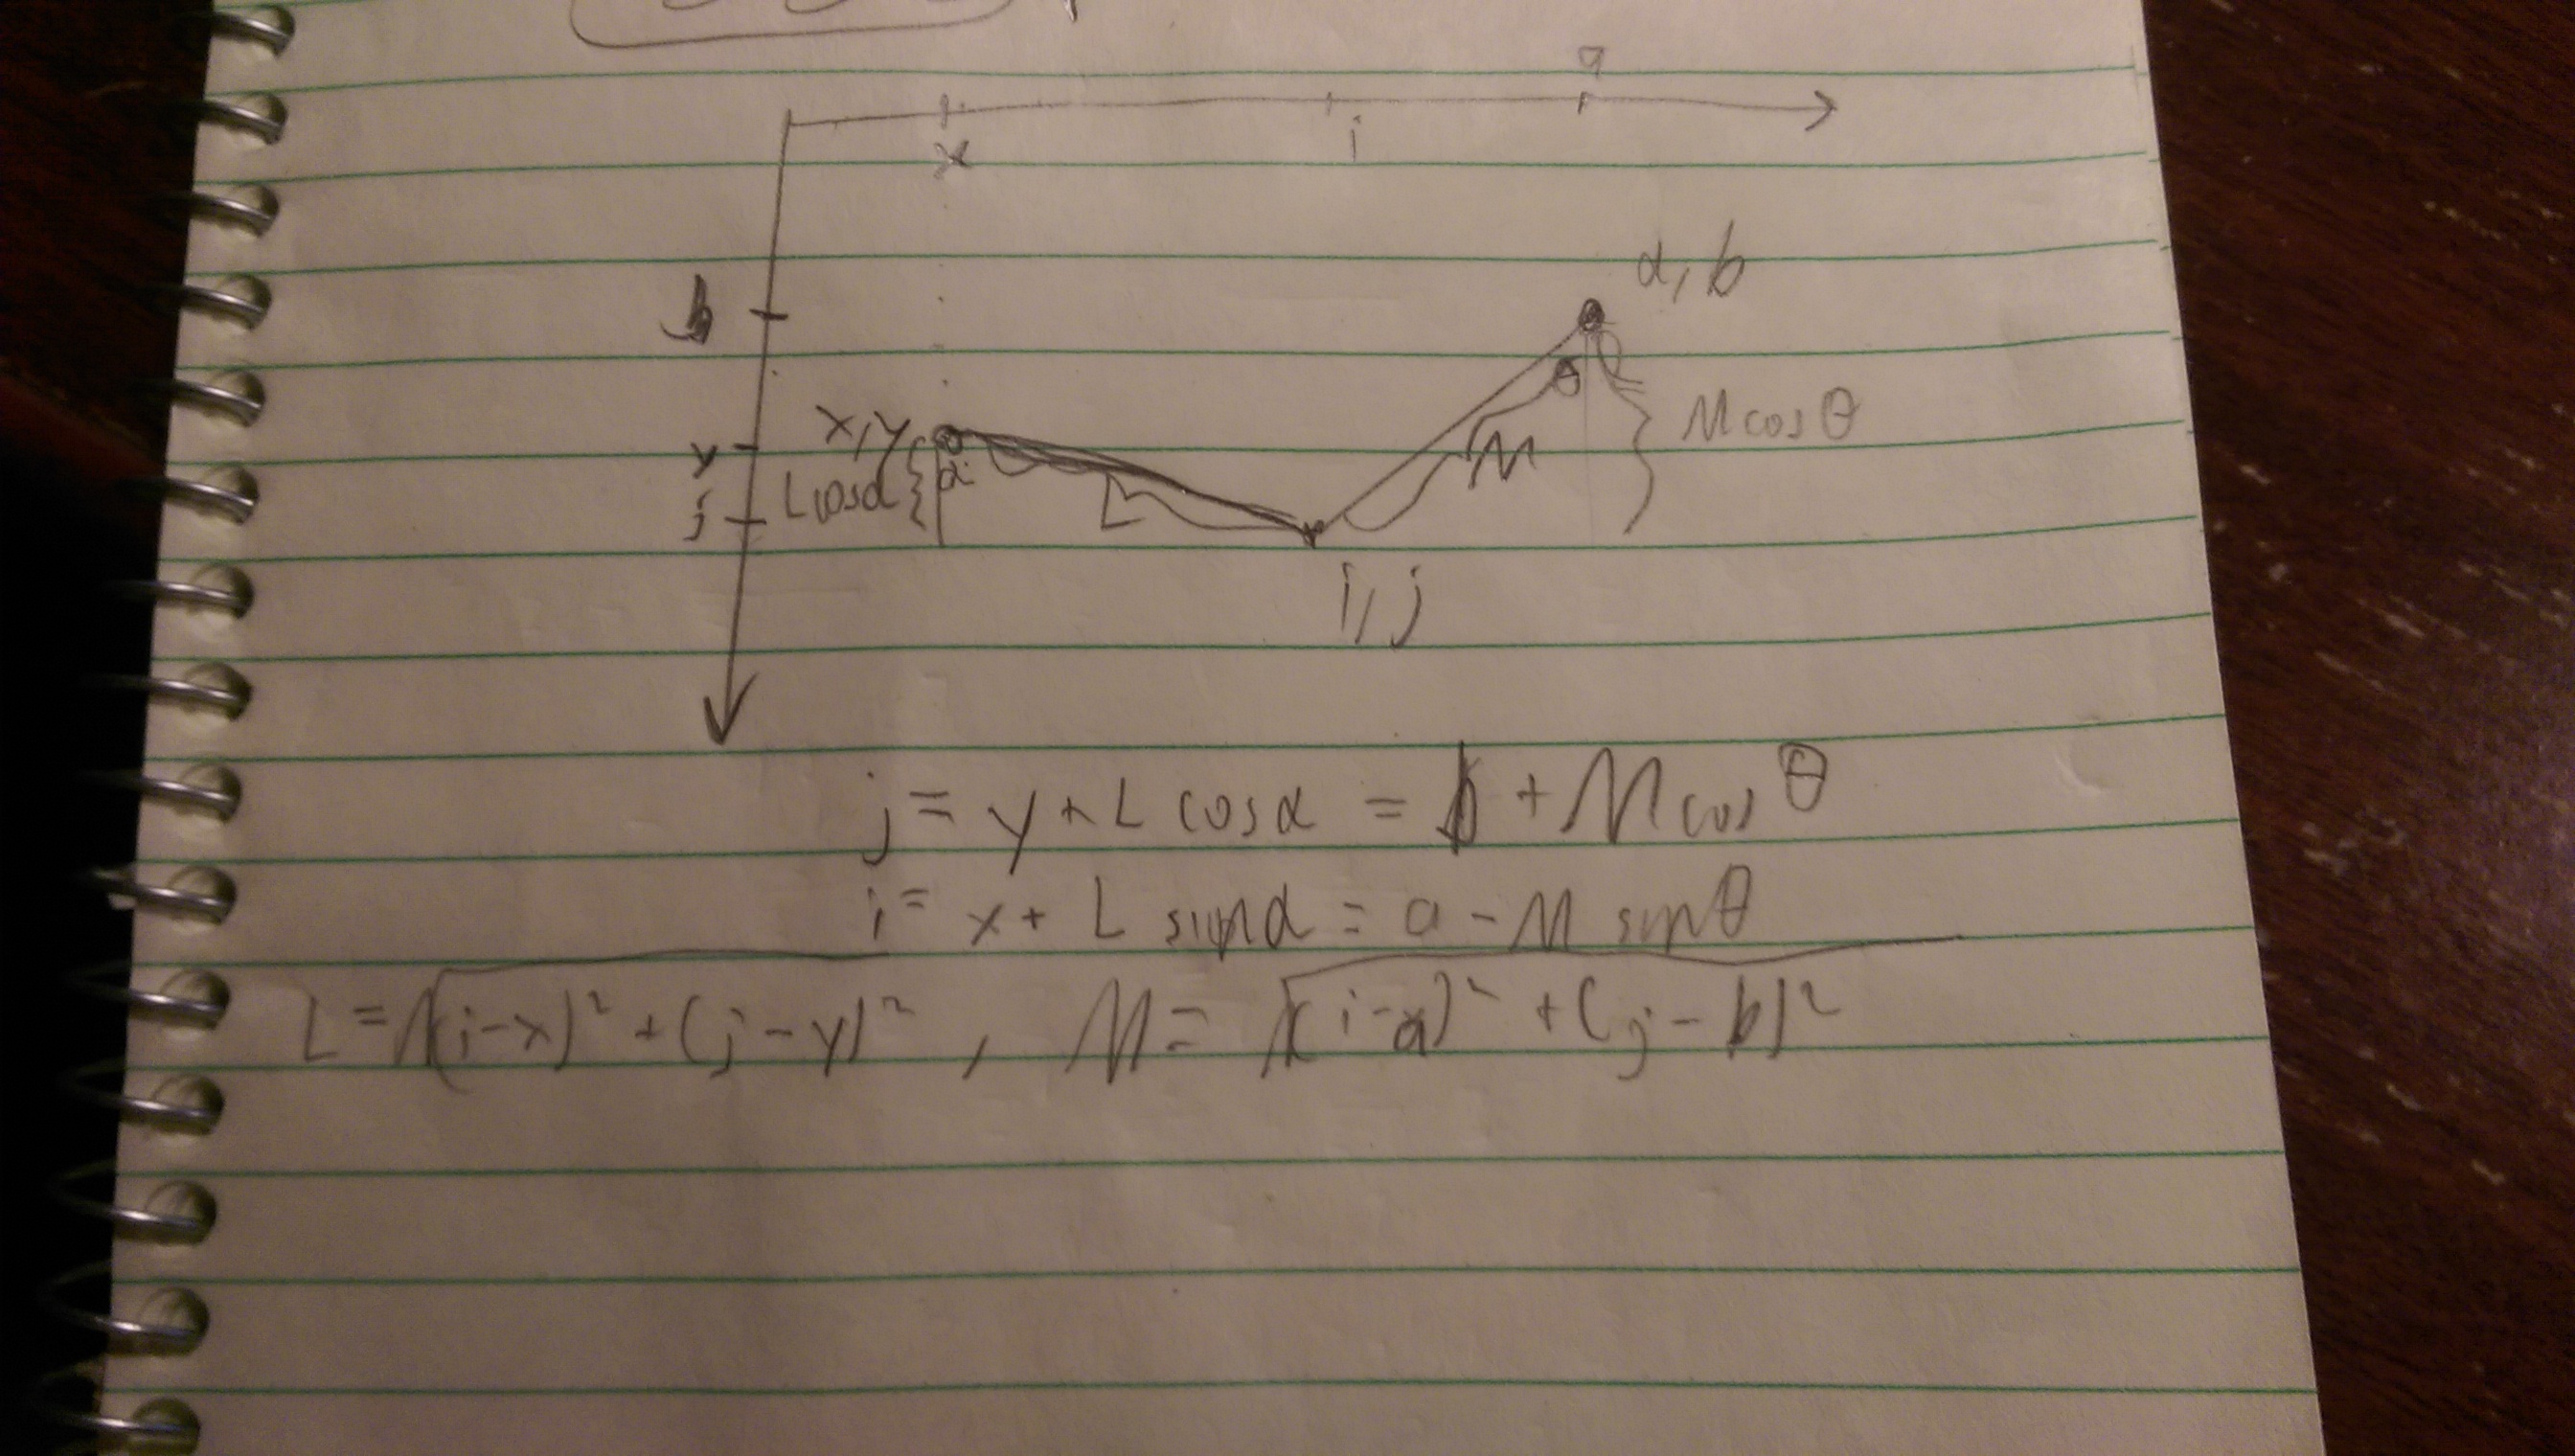 a
x i
a, b
b
x, y
M cos θ
θ
y
α
L cos α
M
L
j
i, j
j = y + L cos α = b + M cos θ
i = x + L sin α = a - M sin θ
L = √(i-x)² + (j-y)² , M = √(i-a)² + (j-b)²